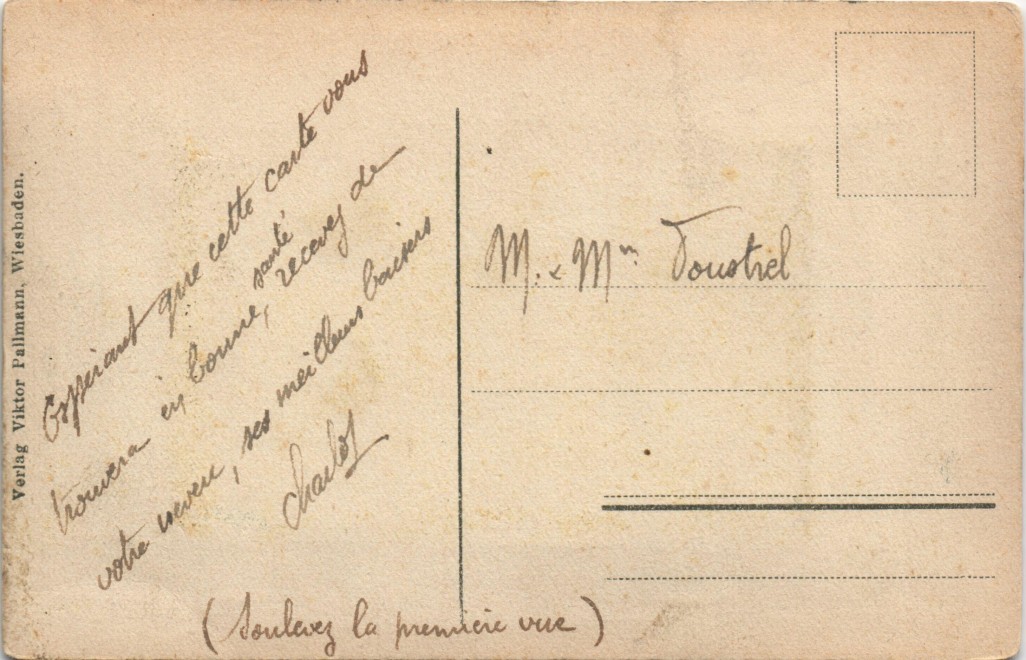 Verlag Viktor Pallmann, Wiesbaden.
Espérant que cette carte vous
trouvera en bonne, santé
recevez de
votre neveu, ses meilleurs baisers
Charlot
(Soulevez la première vue)
M. & Mme Toustrel